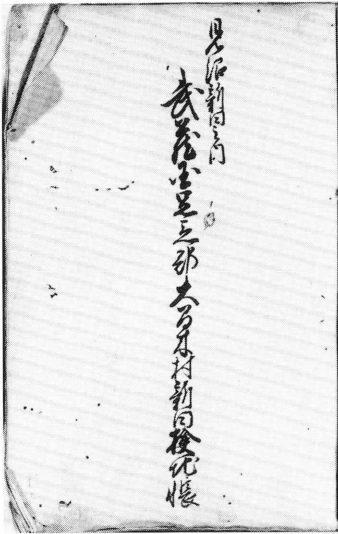 見沼新田之内
武蔵国足立郡大間木村新田検地帳